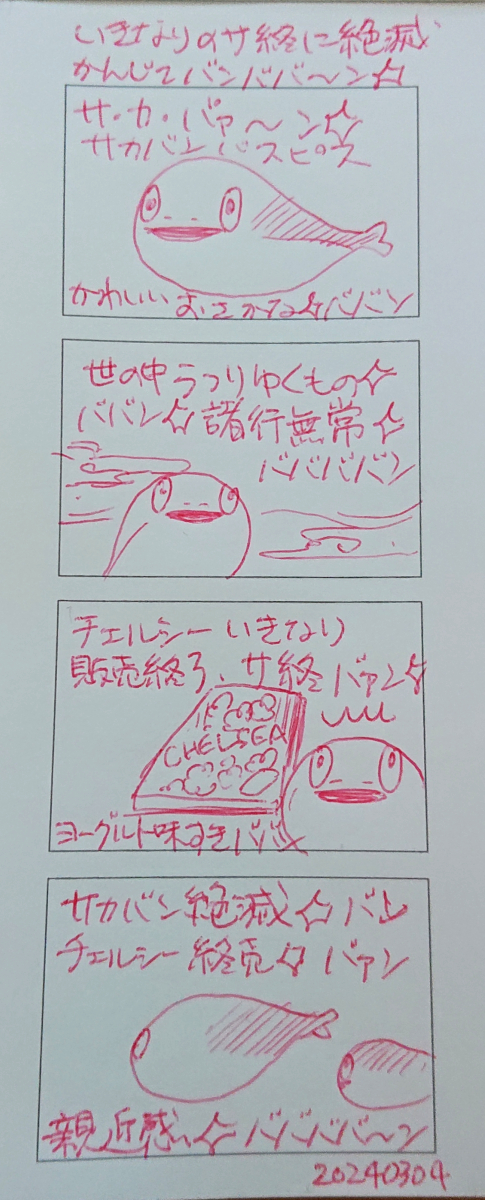 いきなりのサ終に絶滅
かんじてバンババ〜ン☆
サ・カ・バァ〜ン☆
サカバンバスピス
かわいい おさかな☆ババン
世の中うつりゆくもの☆
ババン☆諸行無常☆
ババババン
チェルシー いきなり
販売終了、サ終 バァン☆
CHELSEA
ヨーグルト味すきババン
サカバン絶滅☆バン
チェルシー終売☆バァン
親近感☆ババババ〜ン
20240304